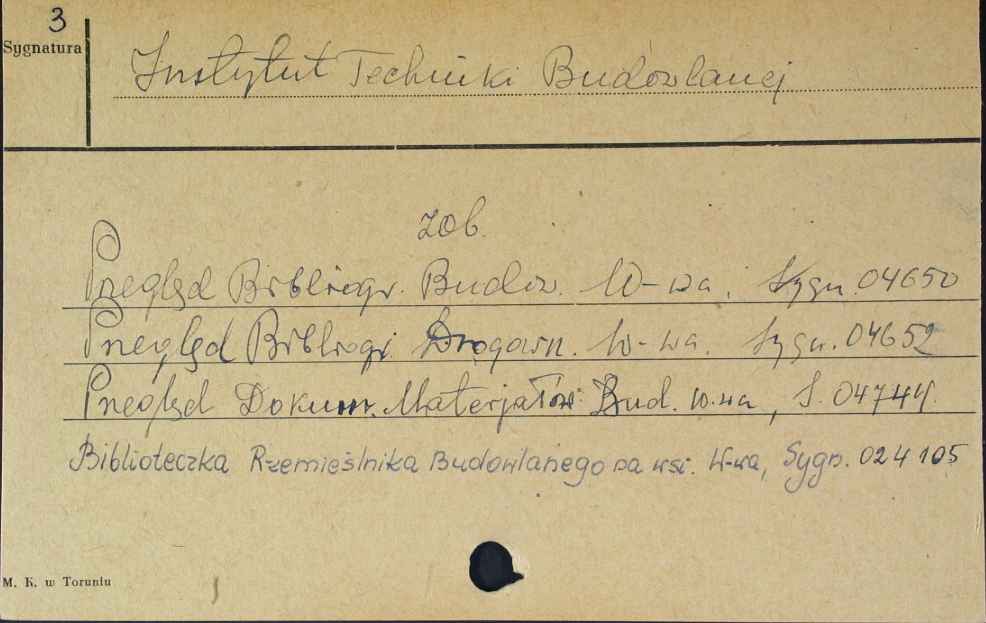 3
Sygnatura
Instytut Techniki Budowlanej
zob.
Przegląd Bibliogr. Budow. W-wa. Sygn. 04650
Przegląd Bibliogr. Drogown. W-wa. Sygn. 04652
Przegląd Dokum. Materjałów Bud. W.wa, S. 04744.
Biblioteczka Rzemieślnika Budowlanego na wsi. W-wa, Sygn. 024105
M. K. w Toruniu